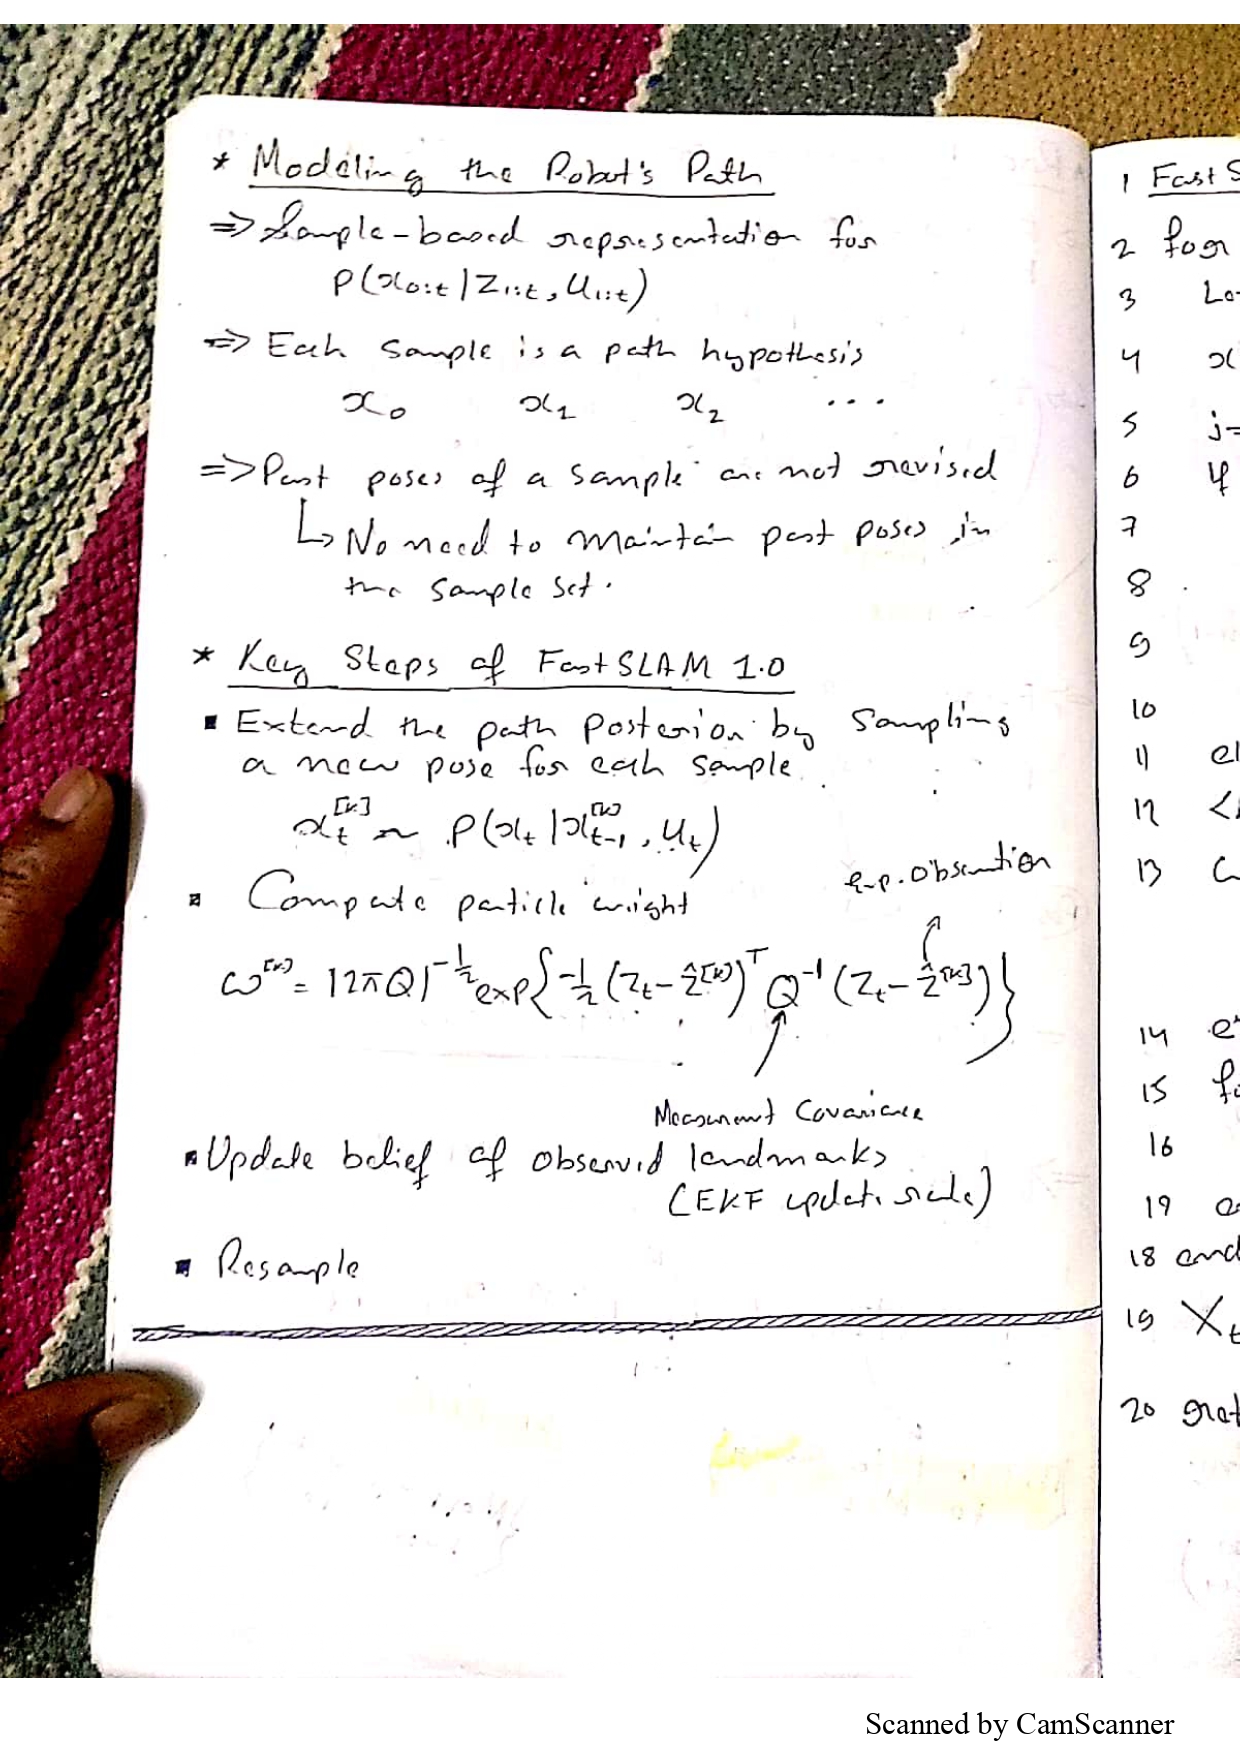 * Modeling the Robot's Path
⇒ Sample-based representation for
P(x₀:t | z₁:t, u₁:t)
⇒ Each sample is a path hypothesis
x₀ x₁ x₂ ...
⇒ Past poses of a sample are not revised
↳ No need to maintain past poses in
the sample set.
* Key Steps of FastSLAM 1.0
▪ Extend the path posterior by sampling
a new pose for each sample
x_t^[k] ~ P(x_t | x_{t-1}^[k], u_t)
exp. Observation
▪ Compute particle weight
ω^[k] = |2πQ|^{-1/2} exp{-1/2 (z_t - ẑ^[k])^T Q^{-1} (z_t - ẑ^[k])}
Measurement Covariance
▪ Update belief of observed landmarks
(EKF update rule)
▪ Resample
1 Fast S
2 for
3 Lo
4 x
5 j=
6 if
7
8
9
10
11 el
12 <
13
14 e
15 fo
16
19 e
18 end
19 X_t
20 ret
Scanned by CamScanner